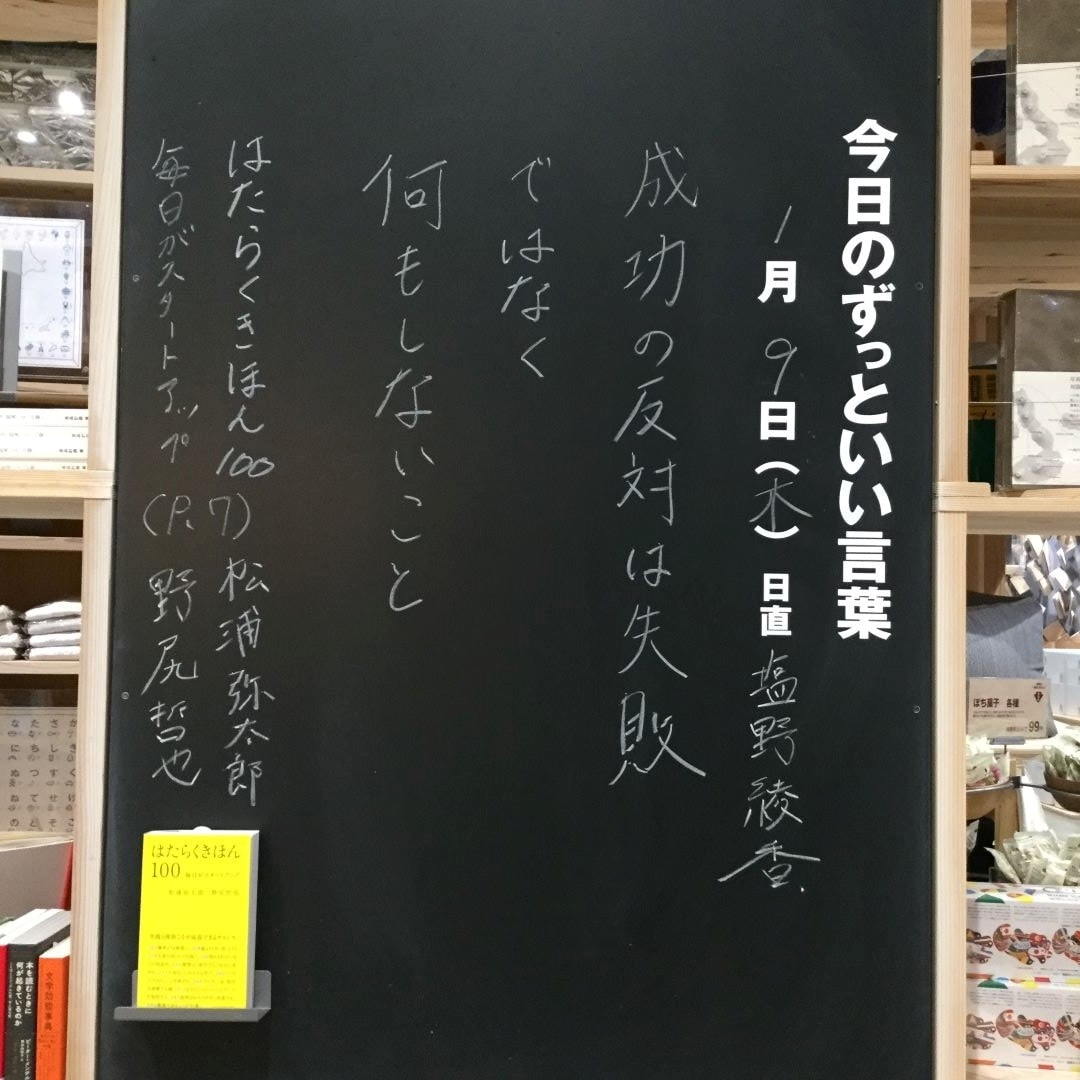 今日のずっといい言葉
1月9日(木) 日直 塩野綾香
成功の反対は失敗
ではなく
何もしないこと
はたらくきほん100
毎日がスタートアップ
(P.7)
松浦弥太郎
野尻哲也
はたらくきほん
100 毎日がスタートアップ
松浦弥太郎 野尻哲也
本を読むときに
何が起きているのか
文学効能事典
ぽち菓子 各種
99